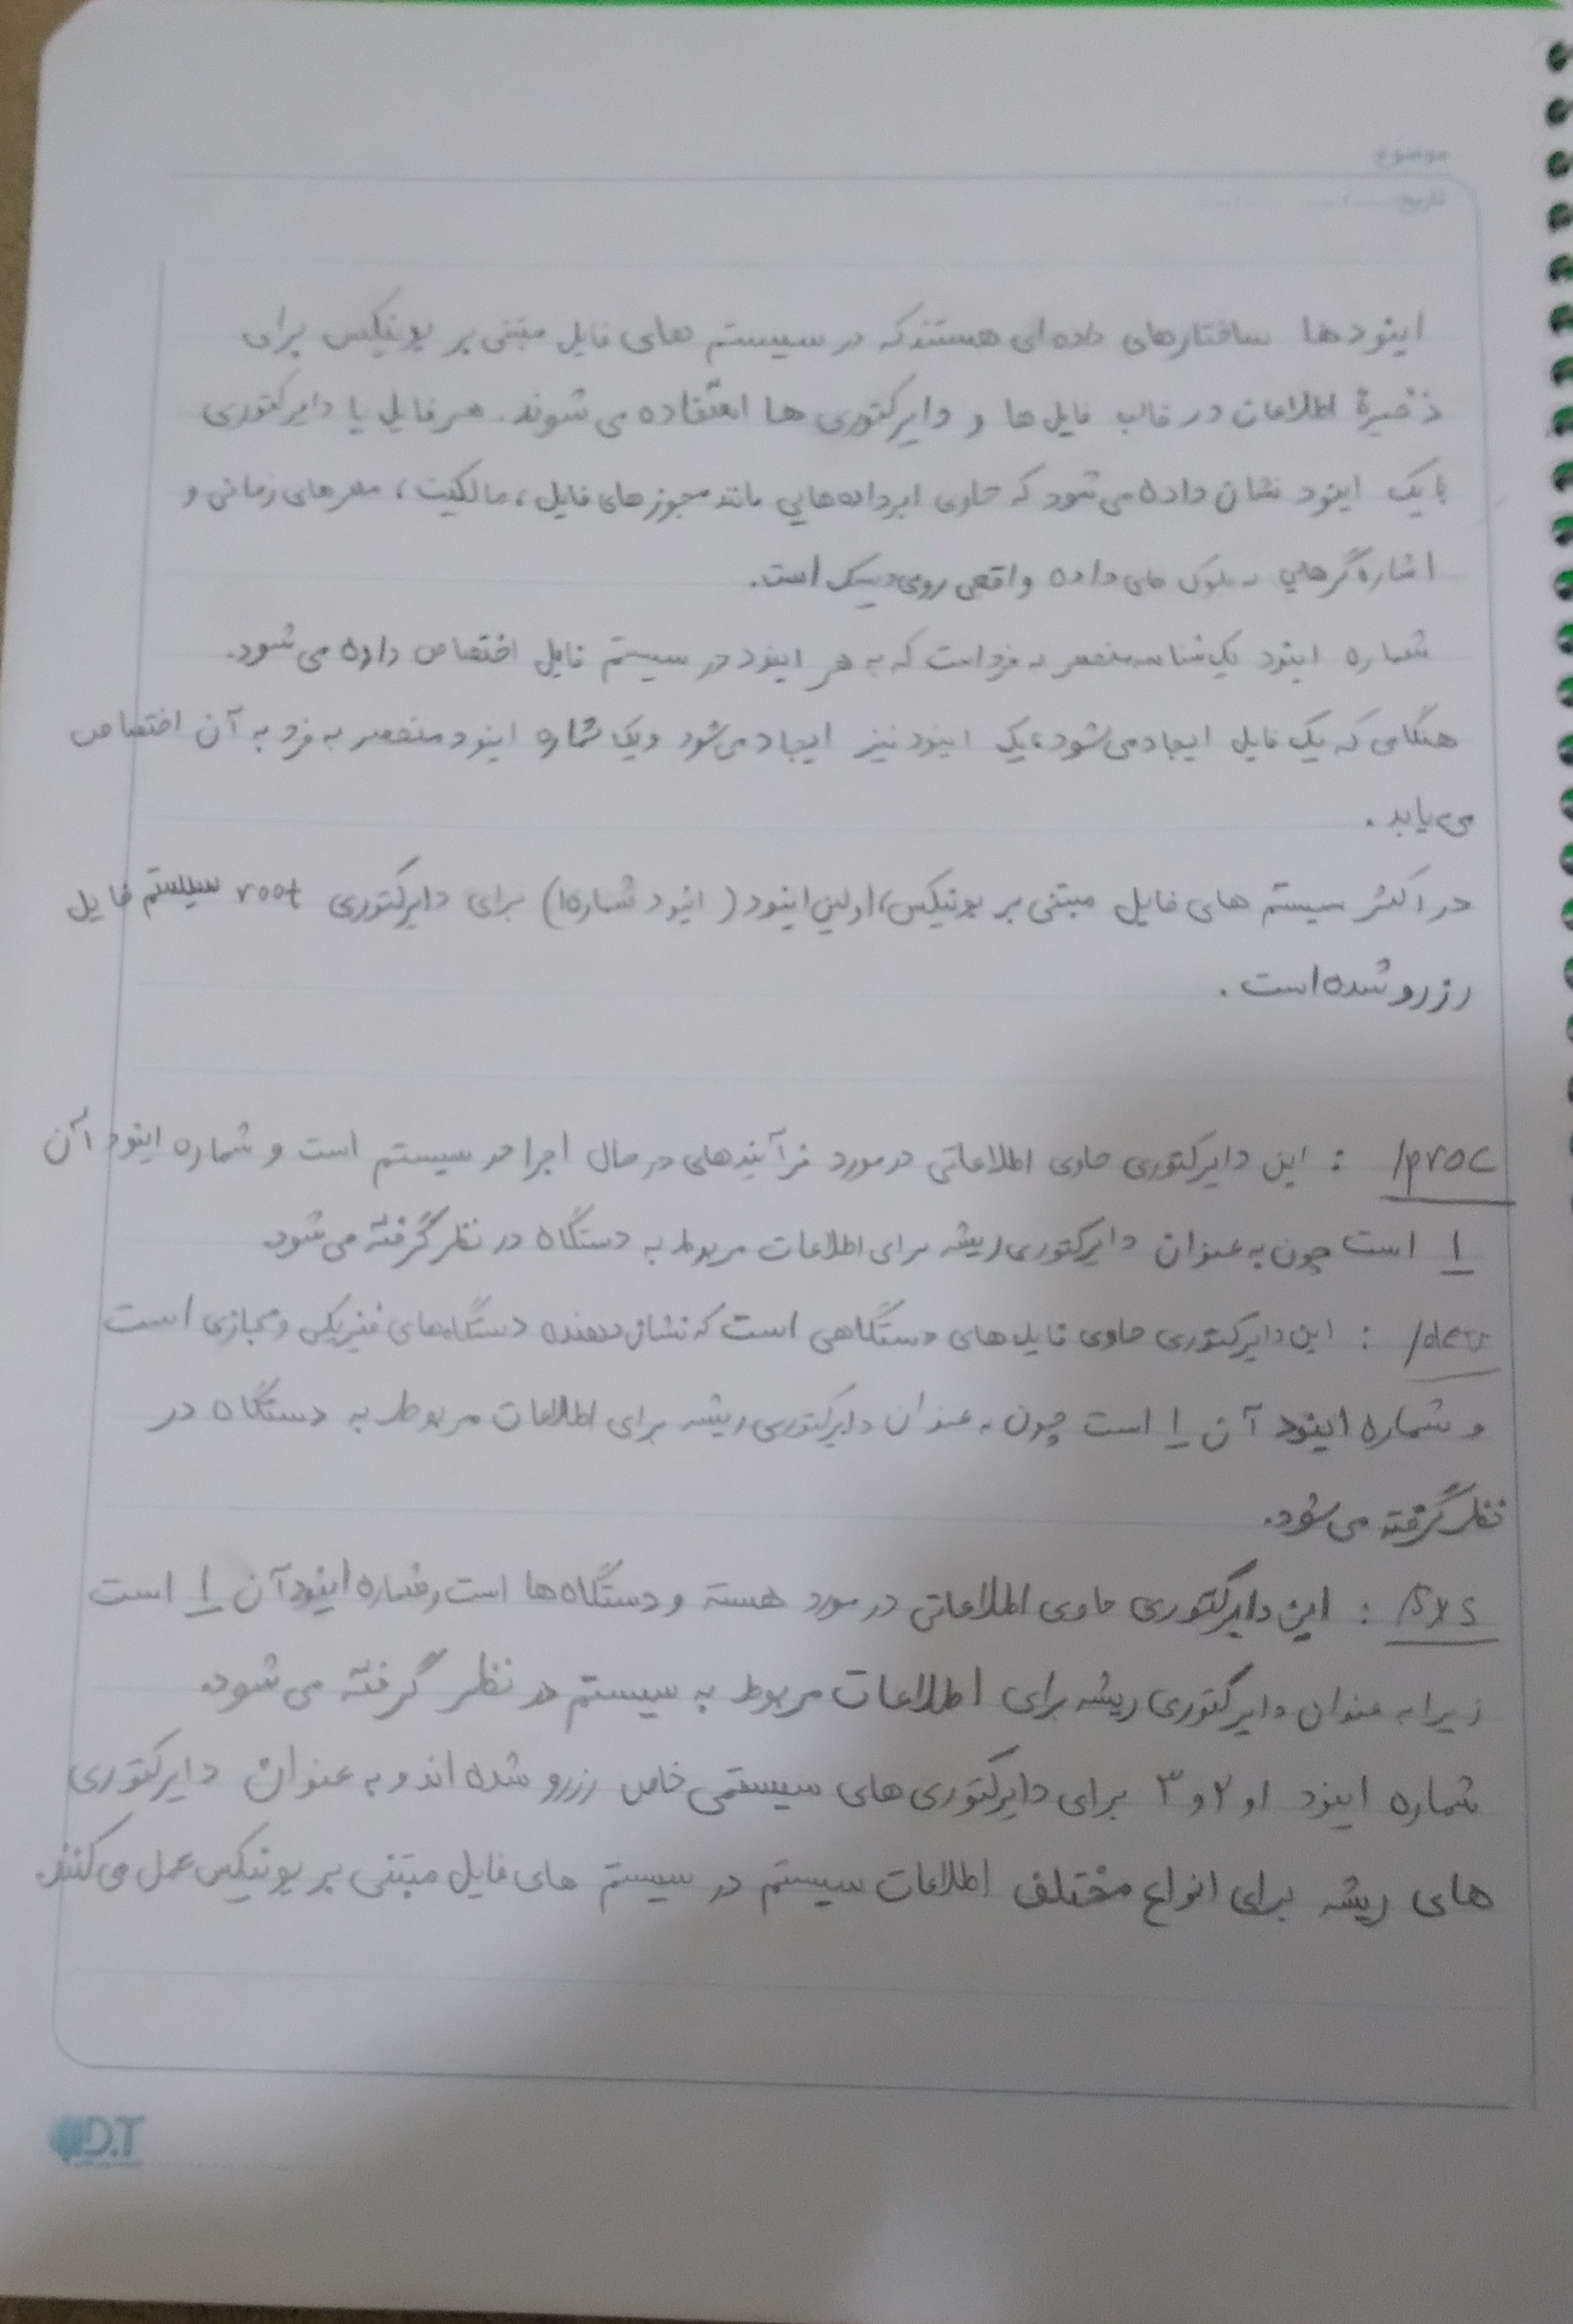 موضوع
تاریخ
اینودها ساختارهای داده‌ای هستند که در سیستم های فایل مبتنی بر یونیکس برای
ذخیرهٔ اطلاعات در قالب فایل ها و دایرکتوری ها استفاده می شوند. هر فایل یا دایرکتوری
با یک اینود نشان داده می شود که حاوی ابرداده‌هایی مانند مجوزهای فایل، مالکیت، مهرهای زمانی و
اشاره‌گرهایی به بلوک های داده واقعی روی دیسک است.
شماره اینود یک شناسه منحصر به فرد است که به هر اینود در سیستم فایل اختصاص داده می شود.
هنگامی که یک فایل ایجاد می شود، یک اینود نیز ایجاد می شود و یک شماره اینود منحصر به فرد به آن اختصاص
می یابد.
در اکثر سیستم های فایل مبتنی بر یونیکس، اولین اینود (اینود شماره ۱) برای دایرکتوری root سیستم فایل
رزرو شده است.
/proc : این دایرکتوری حاوی اطلاعاتی در مورد فرآیندهای در حال اجرا در سیستم است و شماره اینود آن
۱ است چون به عنوان دایرکتوری ریشه برای اطلاعات مربوط به دستگاه در نظر گرفته می شود.
/dev : این دایرکتوری حاوی فایل های دستگاهی است که نشان دهنده دستگاه‌های فیزیکی و مجازی است
و شماره اینود آن ۱ است چون به عنوان دایرکتوری ریشه برای اطلاعات مربوط به دستگاه در
نظر گرفته می شود.
/sys : این دایرکتوری حاوی اطلاعاتی در مورد هسته و دستگاه ها است و شماره اینود آن ۱ است
زیرا به عنوان دایرکتوری ریشه برای اطلاعات مربوط به سیستم در نظر گرفته می شود.
شماره اینود ۱ و ۲ و ۳ برای دایرکتوری های سیستمی خاص رزرو شده اند و به عنوان دایرکتوری
های ریشه برای انواع مختلف اطلاعات سیستم در سیستم های فایل مبتنی بر یونیکس عمل می کنند.
D.T